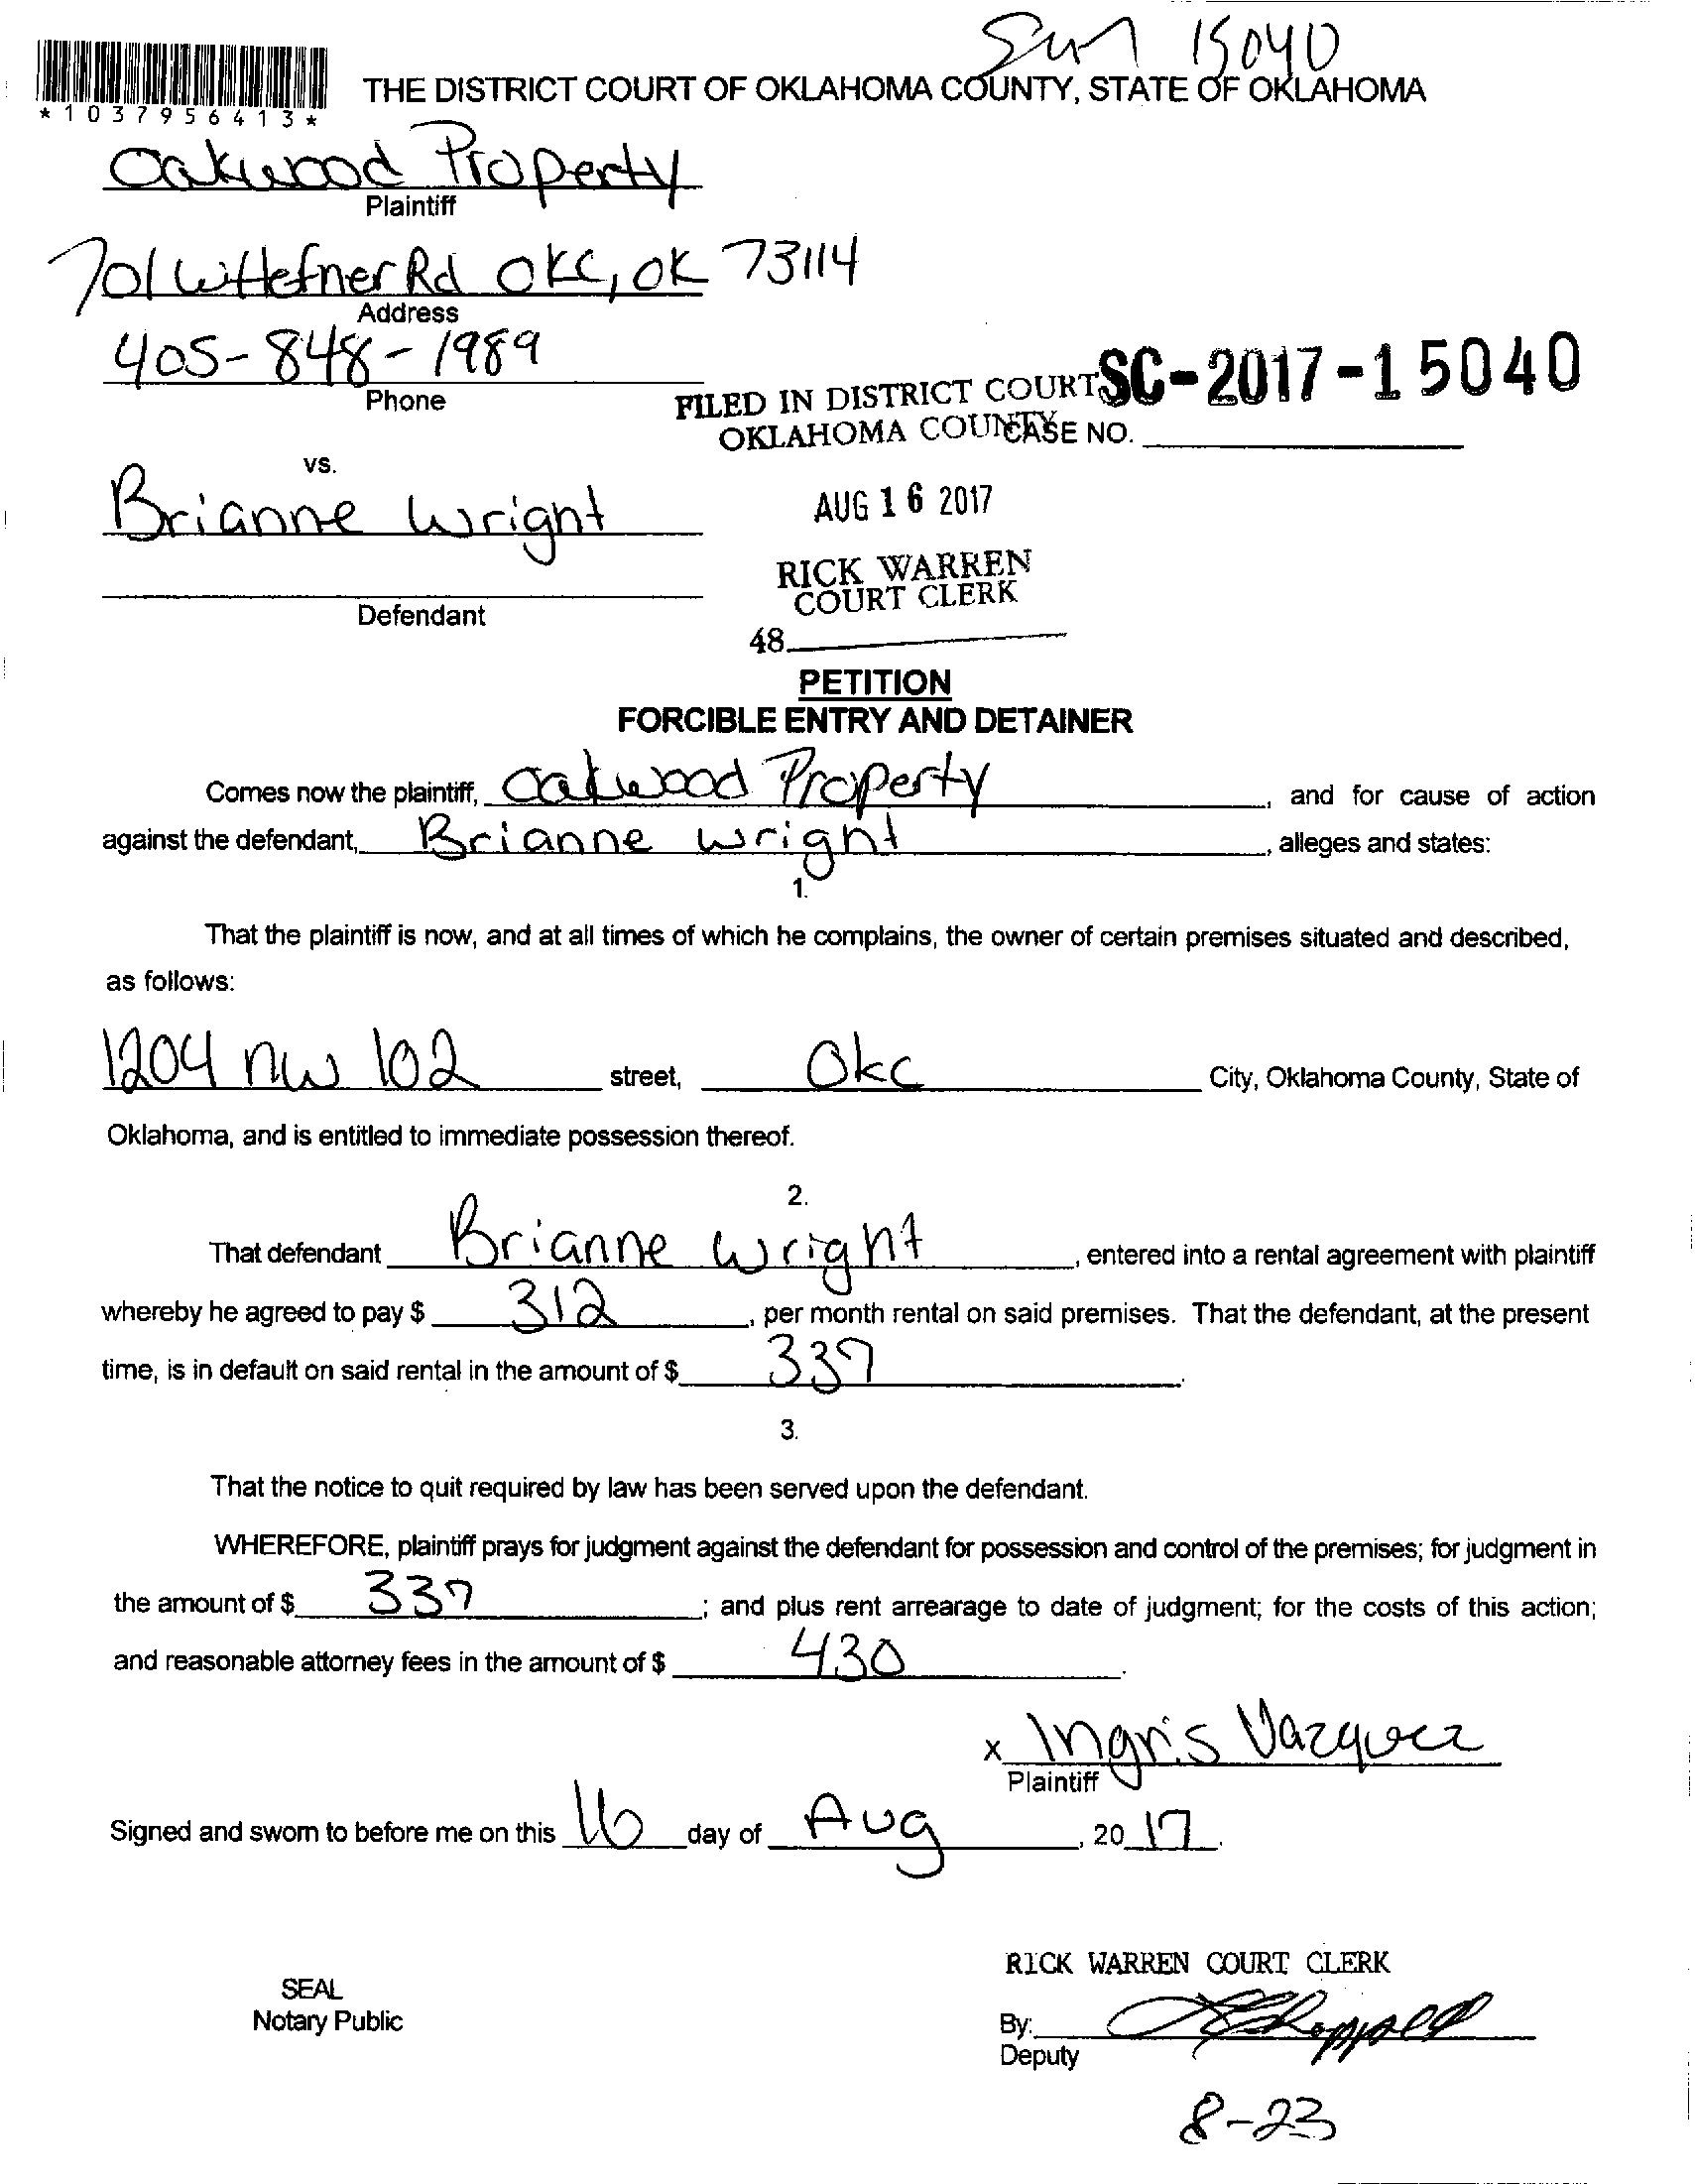 15040
*1037956413*
THE DISTRICT COURT OF OKLAHOMA COUNTY, STATE OF OKLAHOMA
Oakwood Property
Plaintiff
701 W Hefner Rd OKC, OK 73114
Address
405-848-1989
Phone
SC-2017-15040
FILED IN DISTRICT COURT
OKLAHOMA COUNTY
CASE NO.
vs.
Brianne Wright
AUG 16 2017
RICK WARREN
COURT CLERK
Defendant
48
PETITION
FORCIBLE ENTRY AND DETAINER
Comes now the plaintiff, Oakwood Property, and for cause of action
against the defendant, Brianne Wright, alleges and states:
1.
That the plaintiff is now, and at all times of which he complains, the owner of certain premises situated and described,
as follows:
1204 NW 102 street, OKC City, Oklahoma County, State of
Oklahoma, and is entitled to immediate possession thereof.
2.
That defendant Brianne Wright, entered into a rental agreement with plaintiff
whereby he agreed to pay $ 312, per month rental on said premises. That the defendant, at the present
time, is in default on said rental in the amount of $ 337.
3.
That the notice to quit required by law has been served upon the defendant.
WHEREFORE, plaintiff prays for judgment against the defendant for possession and control of the premises; for judgment in
the amount of $ 337; and plus rent arrearage to date of judgment; for the costs of this action;
and reasonable attorney fees in the amount of $ 430.
x Ingris Vazquez
Plaintiff
Signed and sworn to before me on this 16 day of Aug, 20 17.
RICK WARREN COURT CLERK
SEAL
Notary Public
By:
Deputy
8-23